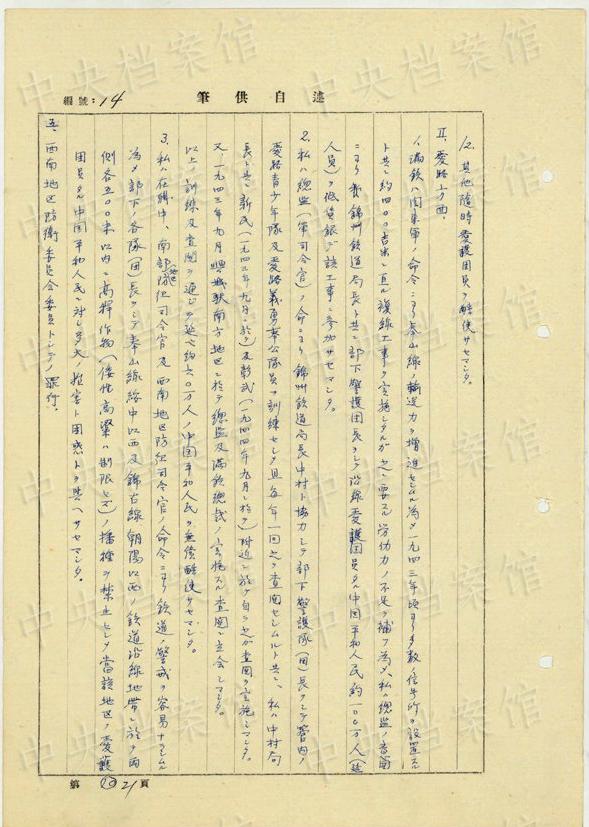 述自供筆
編號：14
12. 其他随時愛護団員ヲ酷使サセマシタ。
II. 愛路上方面、
1. 満鉄ハ関東軍ノ命令ニヨリ奉山線ノ輸送力ヲ増進セシムル為メ一九四三年頃ヨリ多数ノ信号所ヲ設置スル
ト共ニ約四〇〇吉米ニ亘ル複線工事ヲ実施シタルガ之ニ要スル労働力ノ不足ヲ補フ為メ、私ハ総監ノ
ニヨリ錦州鉄道局長ト共ニ部下警護団長ヲシテ沿線愛護団員タル中国平和人民約一〇〇万人（延
人員）ヲ低賃銀デ該工事ニ参加サセマシタ。
2. 私ハ総監（軍司令官）ノ命ニヨリ錦州鉄道局長中村ト協力シテ部下警護隊（団）長ヲシテ管内ノ
愛路青少年隊及愛路義勇奉公隊員ヲ訓練セシメ且毎年一回之ヲ査閲セシムルト共ニ、私ハ中村局
長ト共ニ新民（一九四三年九月ニ於テ）及彰武（一九四四年九月ニ於テ）附近ニ於テ自ラ之ガ査閲ヲ実施シマシタ。
又、一九四三年九月興城駅南方地区ニ於テ総監及満鉄総裁ノ実施スル査閲ニ立会シマシタ。
以上ノ訓練及査閲ヲ通ジテ延ベ約六〇万人ノ中国平和人民ヲ無償酷使サセマシタ。
3. 私ハ在職中、南部地区防衛司令官及西南地区防衛司令官ノ命令ニヨリ鉄道ノ警戒ヲ容易ナラシムル
為メ部下ノ各隊（団）長ヲシテ奉山線綏中以西及錦古線朝陽以西ノ鉄道沿線地帯ニ於テ両
側各五〇〇米以内ニ高稈作物（矮性高粱ハ制限セズ）ノ播種ヲ禁止セシメ当該地区ノ愛護
団員タル中国平和人民ニ対シ多大ノ損害ト困惑トヲ与ヘサセマシタ。
五、西南地区防衛委員会委員トシテノ罪行。
第21頁
中央档案馆